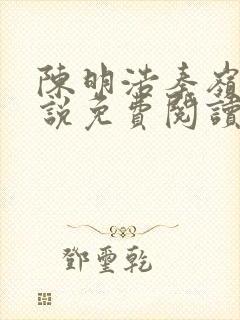 陳明浩秦嶺
說免費閱讀
鄧璽乾